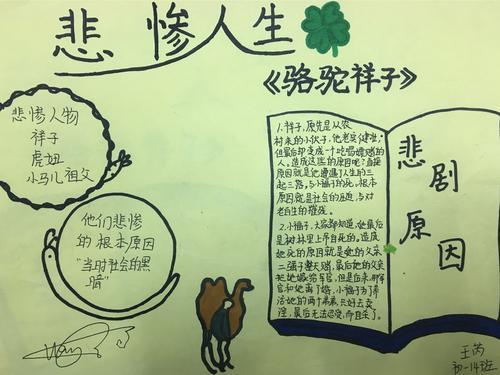 悲惨人生
《骆驼祥子》
悲惨人物
祥子
虎妞
小马儿祖父
他们悲惨
的根本原因
"当时社会的黑
暗"
1.祥子,原先是从农
村来的小伙子,他老实健壮,
但最后却变成一个吃喝嫖赌的
人。造成这些的原因呢?直接
原因就是他遭遇了人生的三
起三落,与小福子的死,根本
原因就是社会的压迫,与对
老百生的摧残。
2.小福子,大家都知道,她最后
是树林里上吊自死的。造成
她死的原因就是她的父亲
二强子整天赌,最后她的父亲
把她嫁给军官,但是后来,那军
官和她离了婚,小福子为了养
活她的两个弟弟,只好去卖
淫,最后无法忍受,而自杀了。
悲剧
原因
王芮
初一14班